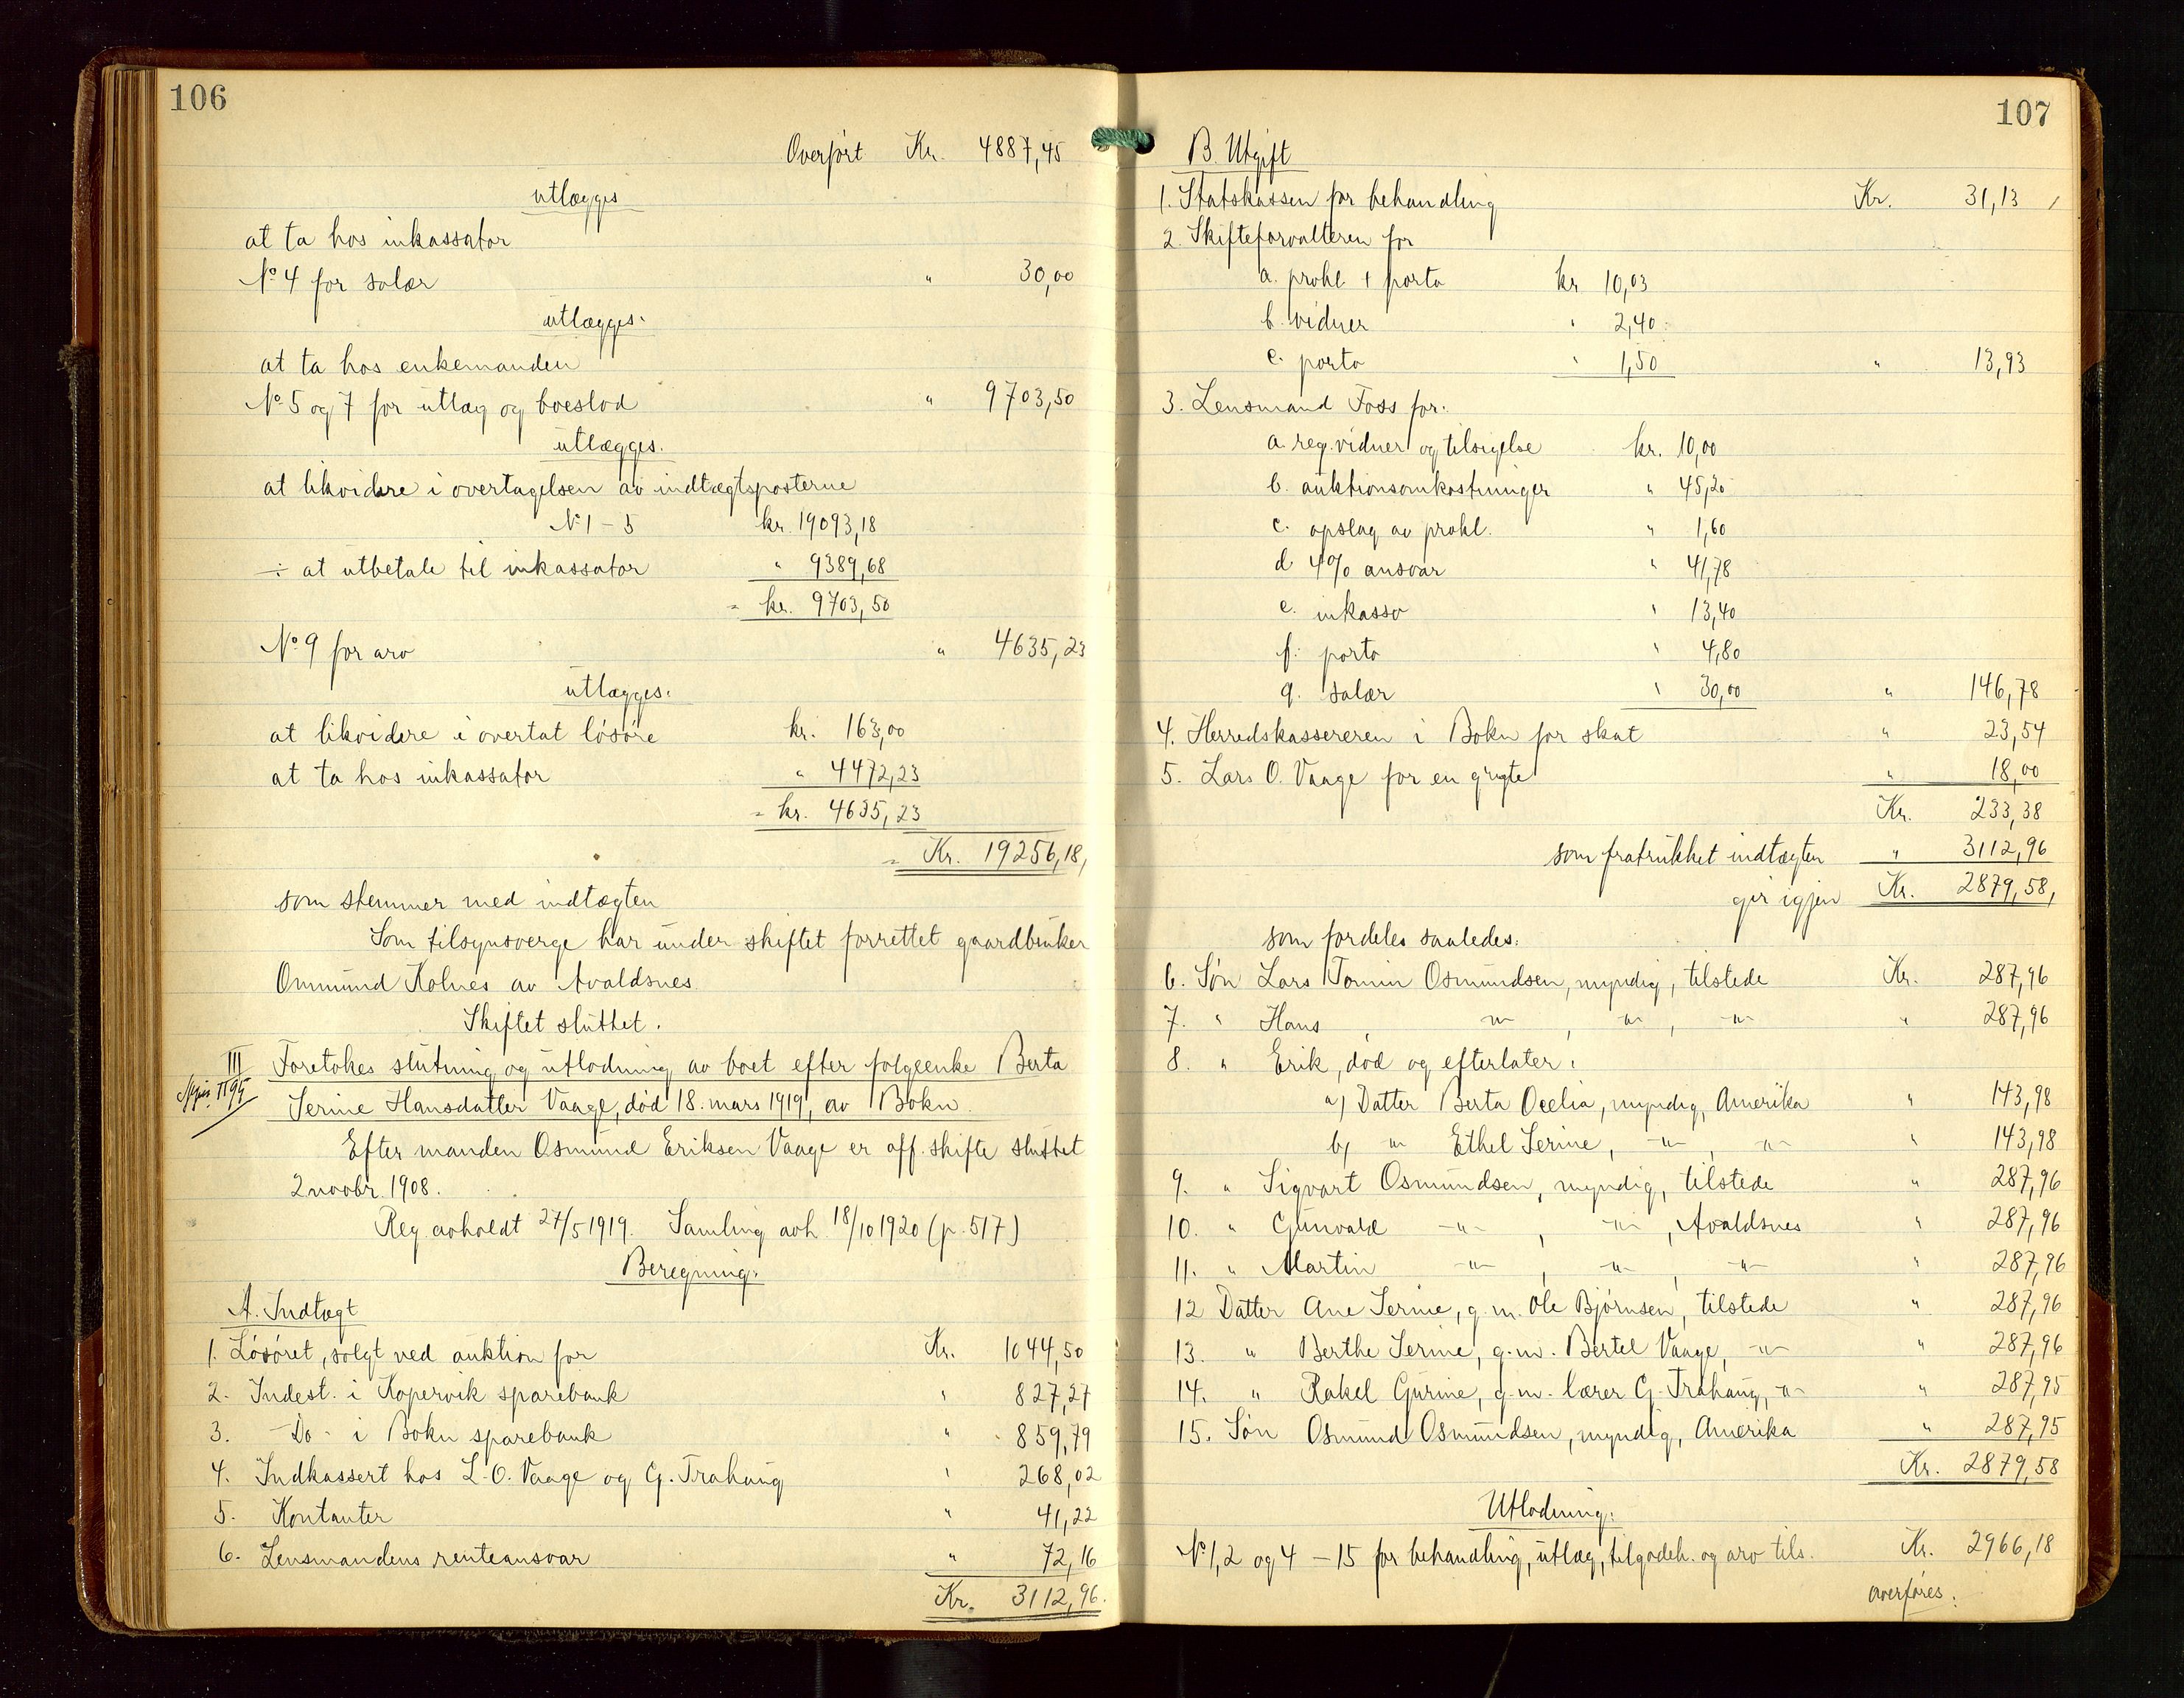 106
Overført Kr. 4887,45
utlægges
at ta hos inkassator
No 4 for salær " 30,00
utlægges.
at ta hos enkemanden
No 5 og 7 for utlæg og boeslod " 9703,50
utlægges.
at likvidere i overtagelsen av indtægtsposterne
No 1 - 5 kr. 19093,18
÷ at utbetale til inkassator " 9389,68
= kr. 9703,50
No 9 for arv " 4635,23
utlægges.
at likvidere i overtat løsøre kr. 163,00
at ta hos inkassator " 4472,23
= kr. 4635,23
= Kr. 19256,18,
som stemmer med indtægten
Som tilsynsverge har under skiftet forrettet gaardbruker
Ommund Kolnes av Avaldsnes
Skiftet sluttet.
III Foretokes slutning og utlodning av boet efter følgeenke Berta
Serine Hansdatter Vaage, død 18. mars 1919, av Bokn.
Efter manden Osmund Eriksen Vaage er off. skifte sluttet
2 novbr. 1908.
Reg avholdt 27/5 1919. Samling avh. 18/10 1920 (p. 517)
Beregning:
A. Indtægt
1. Løsøret, solgt ved auktion for Kr. 1044,50
2. Indest. i Kopervik sparebank " 827,27
3. - Do - i Bokn sparebank " 859,79
4. Indkassert hos L. O. Vaage og G. Trahaug " 268,02
5. Kontanter " 41,22
6. Lensmandens renteansvar " 72,16
Kr. 3112,96.
107
B. Utgift
1. Statskassen for behandling Kr. 31,13
2. Skifteforvalteren for
a. prokl + porto kr 10,03
b. vidner " 2,40
c. porto " 1,50 " 13,93
3. Lensmand Foss for:
a. reg. vidner og tilsigelse kr. 10,00
b. auktionsomkostninger " 45,20
c. opslag av prokl. " 1,60
d. 4% ansvar " 41,78
e. inkasso " 13,40
f. porto " 4,80
g. salær " 30,00 " 146,78
4. Herredskassereren i Bokn for skat " 23,54
5. Lars O. Vaage for en grugte " 18,00
Kr. 233,38
som fratrukket indtægten " 3112,96
gir igjen Kr. 2879,58,
som fordeles saaledes:
6. Søn Lars Tomin Osmundsen, myndig, tilstede Kr. 287,96
7. " Hans, -"-, -"-, -"- " 287,96
8. " Erik, død og efterlater:
a) Datter Berta Ocelia, myndig, Amerika " 143,98
b) -"- Ethel Serine, -"-, -"- " 143,98
9. " Sigvart Osmundsen, myndig, tilstede " 287,96
10. " Gunvald -"-, -"-, Avaldsnes " 287,96
11. " Martin -"-, -"-, -"- " 287,96
12 Datter Ane Serine, g. m. Ole Bjørnsen, tilstede " 287,96
13. " Berthe Serine, g. m. Bertel Vaage, -"- " 287,96
14. " Rakel Gurine, g. m. lærer G. Trahaug, -"- " 287,95
15. Søn Osmund Osmundsen, myndig, Amerika " 287,95
Kr. 2879,58
Utlodning:
No 1, 2 og 4 - 15 for behandling, utlæg, tilgodeh. og arv tils. Kr. 2966,18
overføres: